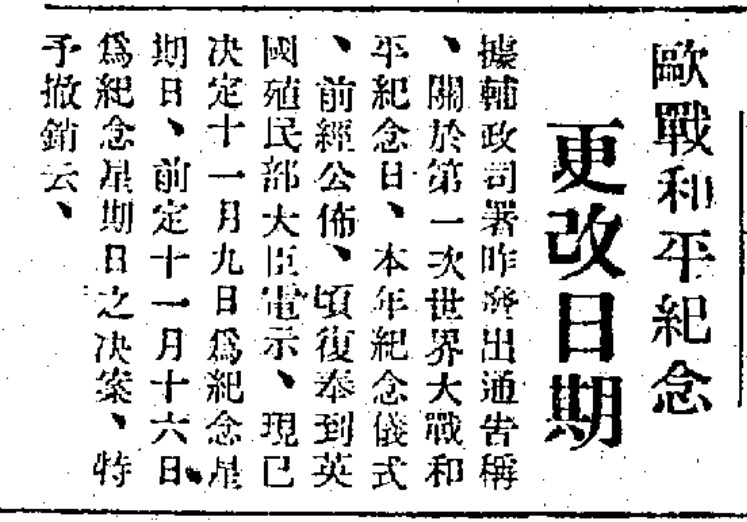 歐戰和平紀念
更改日期
據輔政司署昨發出通告稱
、關於第一次世界大戰和
平紀念日、本年紀念儀式
、前經公佈、頃復奉到英
國殖民部大臣電示、現已
决定十一月九日爲紀念星
期日、前定十一月十六日
爲紀念星期日之决案、特
予撤銷云、